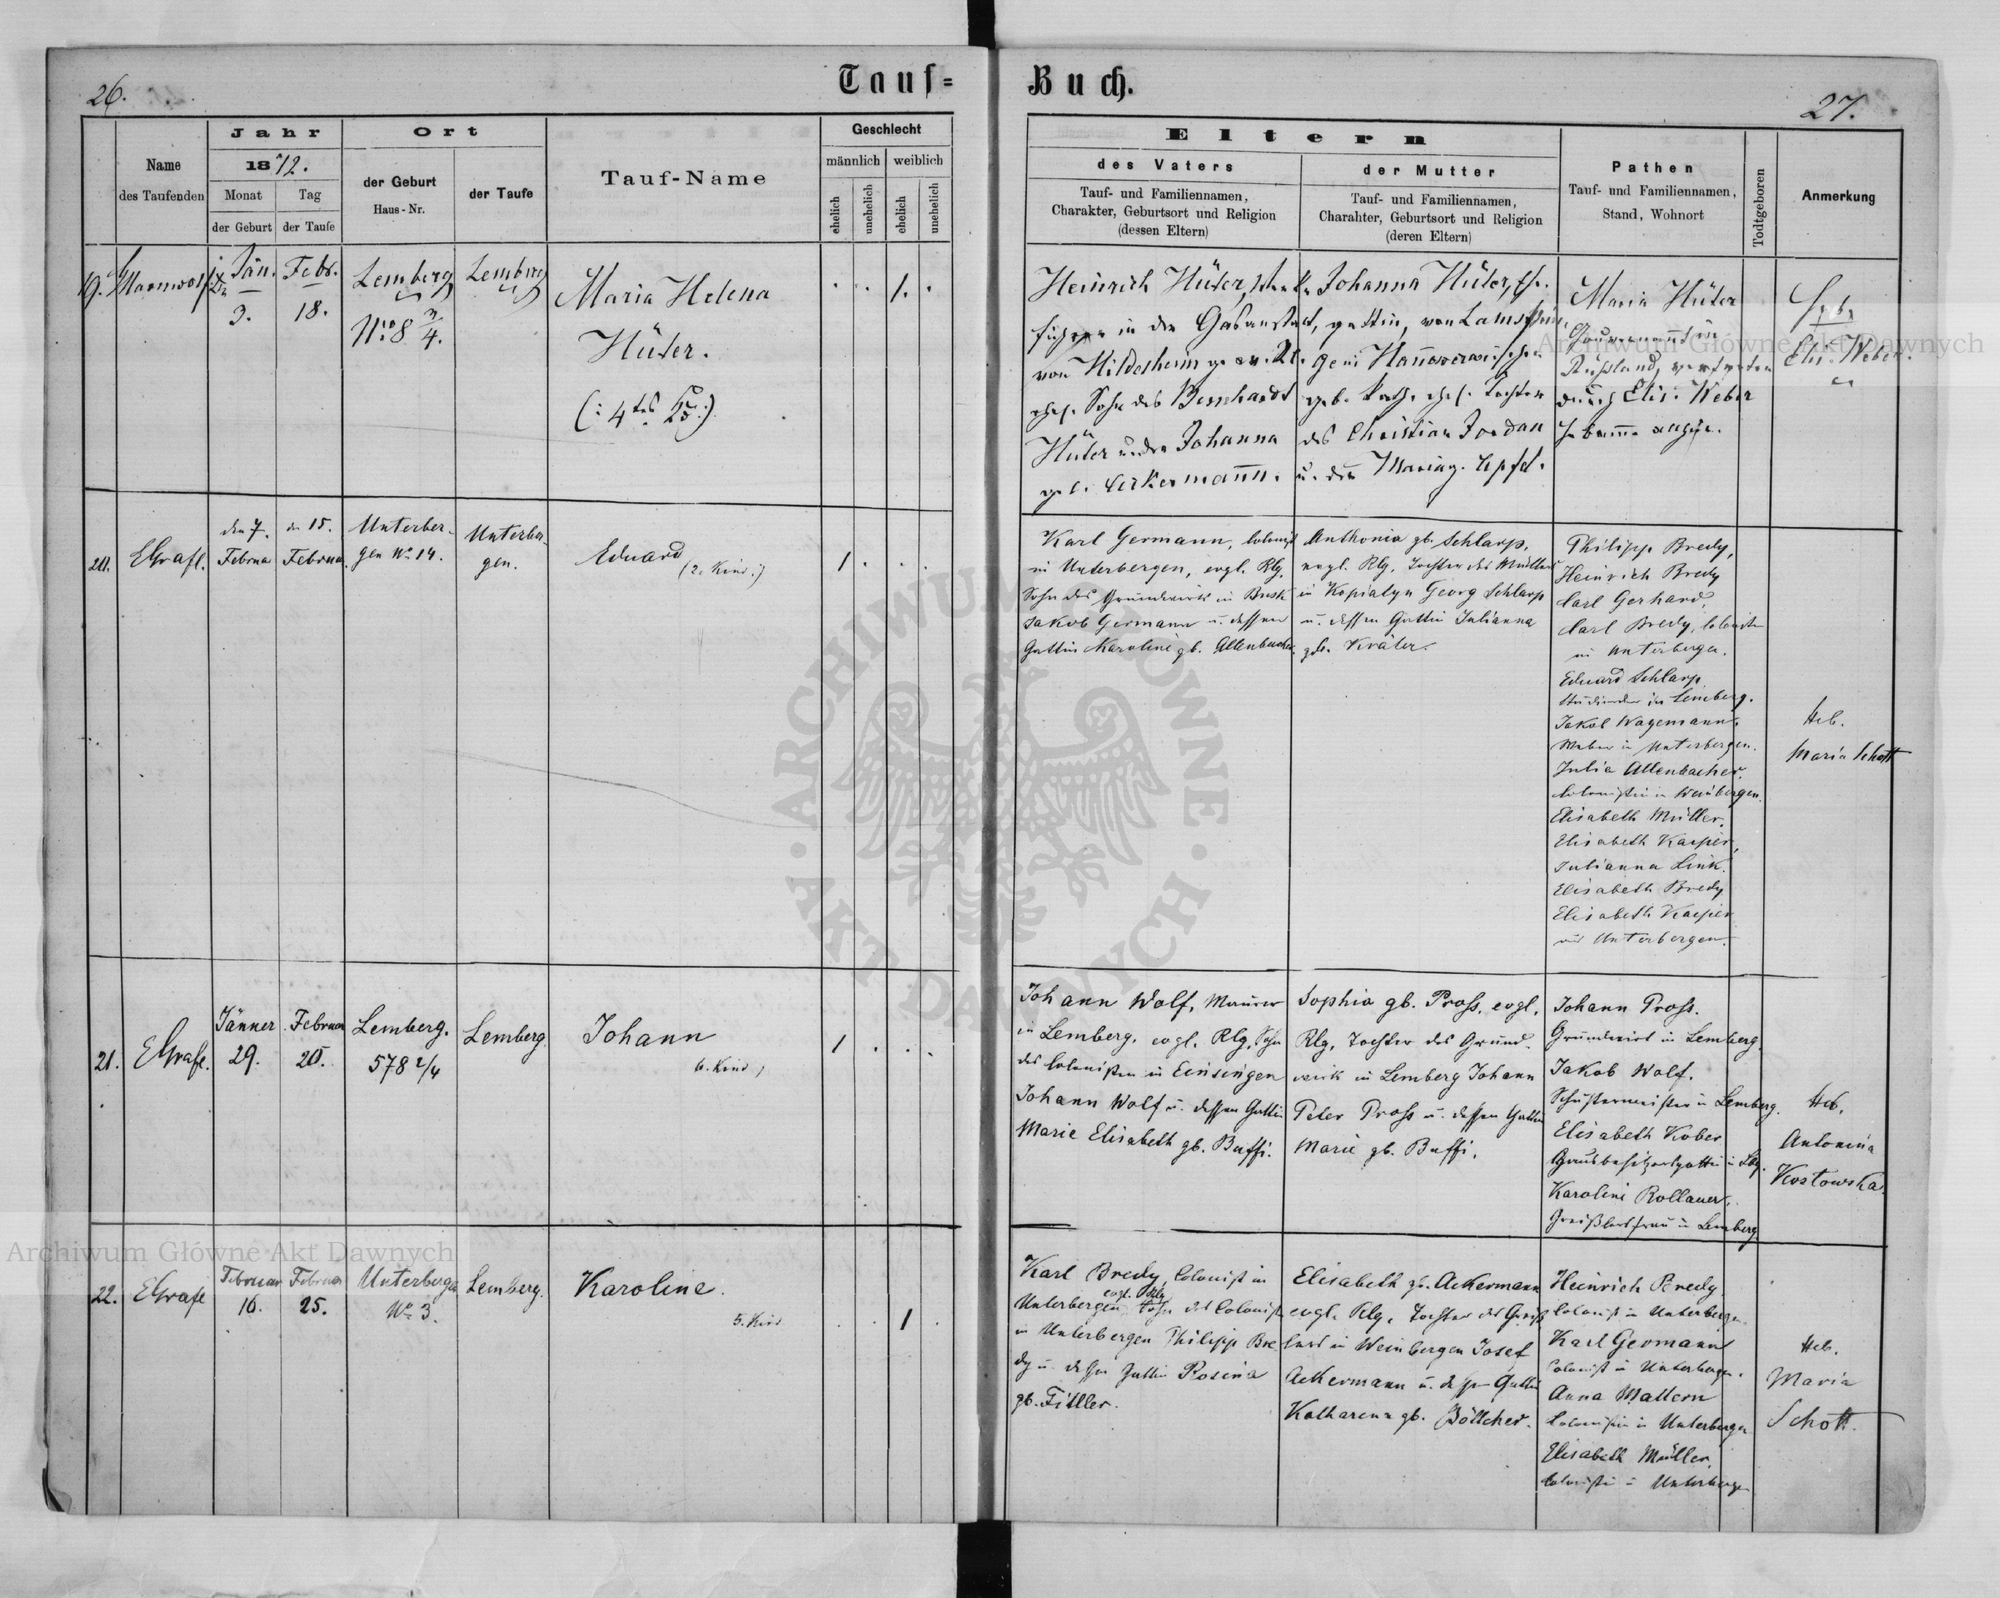 26.
Tauf=
Buch.
27.
Name
des Taufenden
Jahr
1872.
Monat
Tag
der Geburt
der Taufe
Ort
der Geburt
Haus-Nr.
der Taufe
Tauf-Name
Geschlecht
männlich
weiblich
ehelich
unehelich
ehelich
unehelich
Eltern
des Vaters
Tauf- und Familiennamen,
Charakter, Geburtsort und Religion
(dessen Eltern)
der Mutter
Tauf- und Familiennamen,
Charahter, Geburtsort und Religion
(deren Eltern)
Pathen
Tauf- und Familiennamen,
Stand, Wohnort
Todtgeboren
Anmerkung
19.
Jän.
3.
Febr.
18.
Lemberg
No. 8 3/4.
Lemberg
Maria Helena
Hüter.
(: 4tes :)
1.
Heinrich Hüter,
führer in der Gasanstalt,
von Hildesheim
Sohn des Bernhardt
Hüter u. der Johanna
Ackermann.
Johanna Hüter,
gattin, von
Tochter
des Christian Jordan
u. der Maria g. Apfel.
Maria Hüter
Gouvernantin
Rußland, vertreten
durch Elis. Weber
Heb.
Elis. Weber.
20.
EGrafl.
den 7.
Februa
den 15.
Februar.
Unterber-
gen No. 14.
Unterber-
gen.
Eduard
(2. Kind.)
1
Karl Germann, Colonist
in Unterbergen, evgl. Rlg,
Sohn des Grundwirts in Busk
Jakob Germann u. dessen
Gattin Karoline gb. Allenbacher.
Anthonia gb. Schlarp,
evgl. Rlg, Tochter des Müllers
in Kopialyn Georg Schlarp
u. dessen Gattin Julianna
gb. Kräter.
Philipp Bredy,
Heinrich Bredy
Carl Gerhard,
Carl Bredy, Colonisten
in Unterbergen.
Eduard Schlarp
Studierender in Lemberg.
Jakob Wagemann,
Weber in Unterbergen.
Julia Allenbacher,
Colonistin in Weinbergen.
Elisabeth Müller,
Elisabeth Kasper,
Julianna Link.
Elisabeth Bredy
Elisabeth Kasper
aus Unterbergen.
Heb.
Maria Schott
21.
EGrafe.
Jänner
29.
Februar
25.
Lemberg.
578 2/4
Lemberg.
Johann
6. Kind
1
Johann Wolf, Maurer
in Lemberg, evgl. Rlg, Sohn
des Colonisten in Einsingen
Johann Wolf u. dessen Gattin
Marie Elisabeth gb. Buffi.
Sophia gb. Pross, evgl.
Rlg, Tochter des Grund-
wirts in Lemberg Johann
Peter Pross u. dessen Gattin
Marie gb. Buffi.
Johann Pross.
Grundwirt in Lemberg.
Jakob Wolf.
Schustermeister in Lemberg.
Elisabeth Kober
Grundbesitzersgattin in Lbg.
Karoline Rollauer,
Greißlersfrau in Lemberg
Heb.
Antonina
Kostowska.
22.
EGrafe
Februar
16.
Februar
25.
Unterbergen
No. 3.
Lemberg.
Karoline.
5. Kind
1
Karl Bredy, Colonist in
evgl. Rlg
Unterbergen Sohn des Colonist
in Unterbergen Philipp Bre-
dy u. dessen Gattin Rosina
gb. Fittler.
Elisabeth gb. Ackermann
evgl. Rlg, Tochter des Greiß-
lers in Weinbergen Josef
Ackermann u. dessen Gattin
Katharena gb. Böttcher.
Heinrich Bredy
Colonist in Unterbergen.
Karl Germann
Colonist in Unterbergen.
Anna Mattern
Colonistin in Unterbergen
Elisabeth Müller,
Colonistin in Unterbergen
Heb.
Maria
Schott.
ARCHIWUM GŁÓWNE
AKT DAWNYCH
Archiwum Główne Akt Dawnych
Archiwum Główne Akt Dawnych